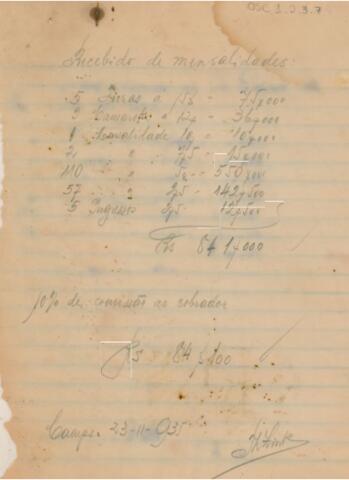 OSC 1.2.3.7
Recebido de mensalidades:
5 a 15$ - 75$000
3 Camarotes a 12$ - 36$000
1 Mensalidade 10$ - 10$000
" a 7,5 - 15$000
110 " a 5$ - 550$000
57 " a 2,5 - 142$500
5 Ingressos 2,5 - 12$500
Rs 841$000
10% de comissão ao cobrador
Rs 84$100
Camps. 23-11-935